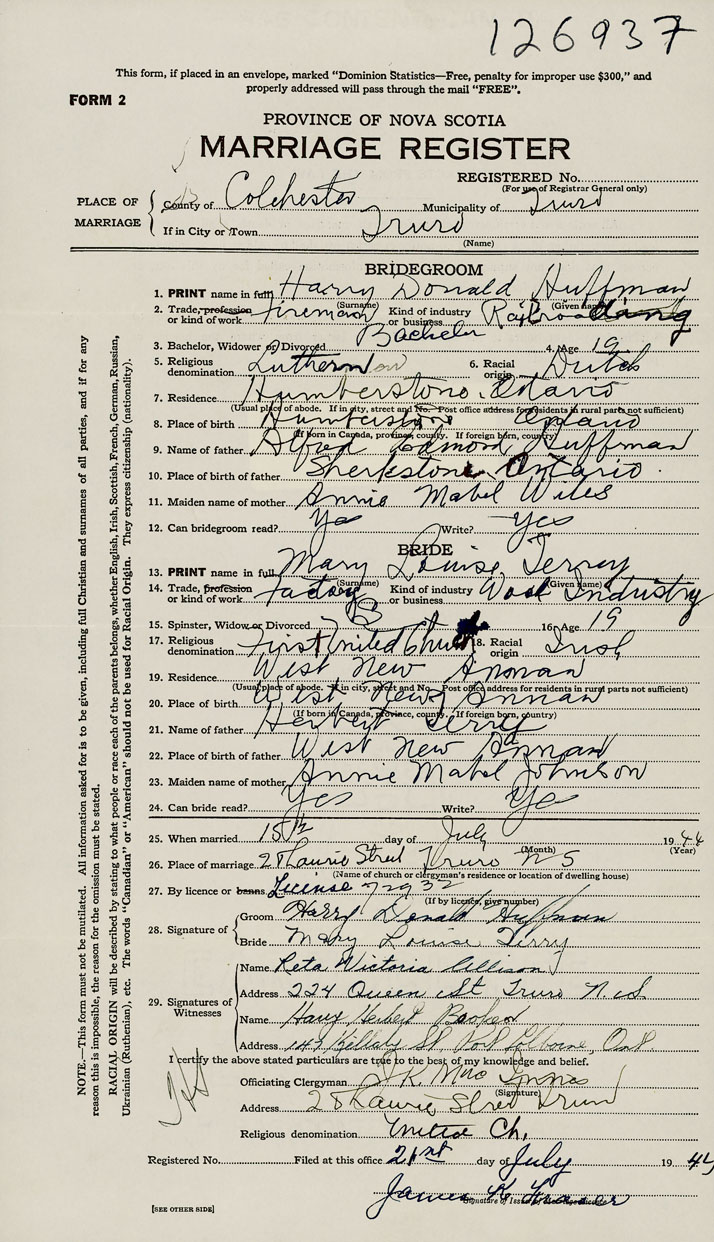 126937
This form, if placed in an envelope, marked “Dominion Statistics—Free, penalty for improper use $300,” and
properly addressed will pass through the mail “FREE”.
FORM 2
PROVINCE OF NOVA SCOTIA
MARRIAGE REGISTER
REGISTERED No.
(For use of Registrar General only)
PLACE OF MARRIAGE
County of Colchester Municipality of Truro
If in City or Town Truro
(Name)
BRIDEGROOM
1. PRINT name in full Harry Donald Huffman
(Surname) (Given name)
2. Trade, profession or kind of work Fireman Kind of industry or business Railroading
3. Bachelor, Widower or Divorced Bachelor 4. Age 19
5. Religious denomination Lutheran 6. Racial origin Dutch
7. Residence Humberstone, Ontario
(Usual place of abode. If in city, street and No. Post office address for residents in rural parts not sufficient)
8. Place of birth Humberstone Ontario
(If born in Canada, province, county. If foreign born, country)
9. Name of father Alfred Edmond Huffman
10. Place of birth of father Sherkstone, Ontario.
11. Maiden name of mother Annie Mabel Wiles
12. Can bridegroom read? Yes Write? Yes
BRIDE
13. PRINT name in full Mary Louise Terry
(Surname) (Given name)
14. Trade, profession or kind of work Factory Kind of industry or business Wool Industry
15. Spinster, Widow or Divorced 16. Age 19
17. Religious denomination First United Church 18. Racial origin Irish
19. Residence West New Annan
(Usual place of abode. If in city, street and No. Post office address for residents in rural parts not sufficient)
20. Place of birth West New Annan
(If born in Canada, province, county. If foreign born, country)
21. Name of father Herbert Terry
22. Place of birth of father West New Annan
23. Maiden name of mother Annie Mabel Johnson
24. Can bride read? Yes Write? Yes
25. When married 15th day of July 1944
(Month) (Year)
26. Place of marriage 28 Laurie Street Truro N S
(Name of church or clergyman's residence or location of dwelling house)
27. By licence or banns License 72932
(If by licence, give number)
28. Signature of
Groom Harry Donald Huffman
Bride Mary Louise Terry
29. Signatures of Witnesses
Name Reta Victoria Allison
Address 224 Queen St Truro N.S.
Name Harry Herbert
Address 147 St Port Colborne, Ont
I certify the above stated particulars are true to the best of my knowledge and belief.
Officiating Clergyman Innes
(Signature)
Address 28 Laurie Street Truro
Religious denomination United Ch.
Registered No. Filed at this office 21st day of July 1944
James K Fraser
[SEE OTHER SIDE]
NOTE.—This form must not be mutilated. All information asked for is to be given, including full Christian and surnames of all parties, and if for any
reason this is impossible, the reason for the omission must be stated.
RACIAL ORIGIN will be described by stating to what people or race each of the parents belongs, whether English, Irish, Scottish, French, German, Russian,
Ukrainian (Ruthenian), etc. The words “Canadian” or “American” should not be used for Racial Origin. They express citizenship (nationality).